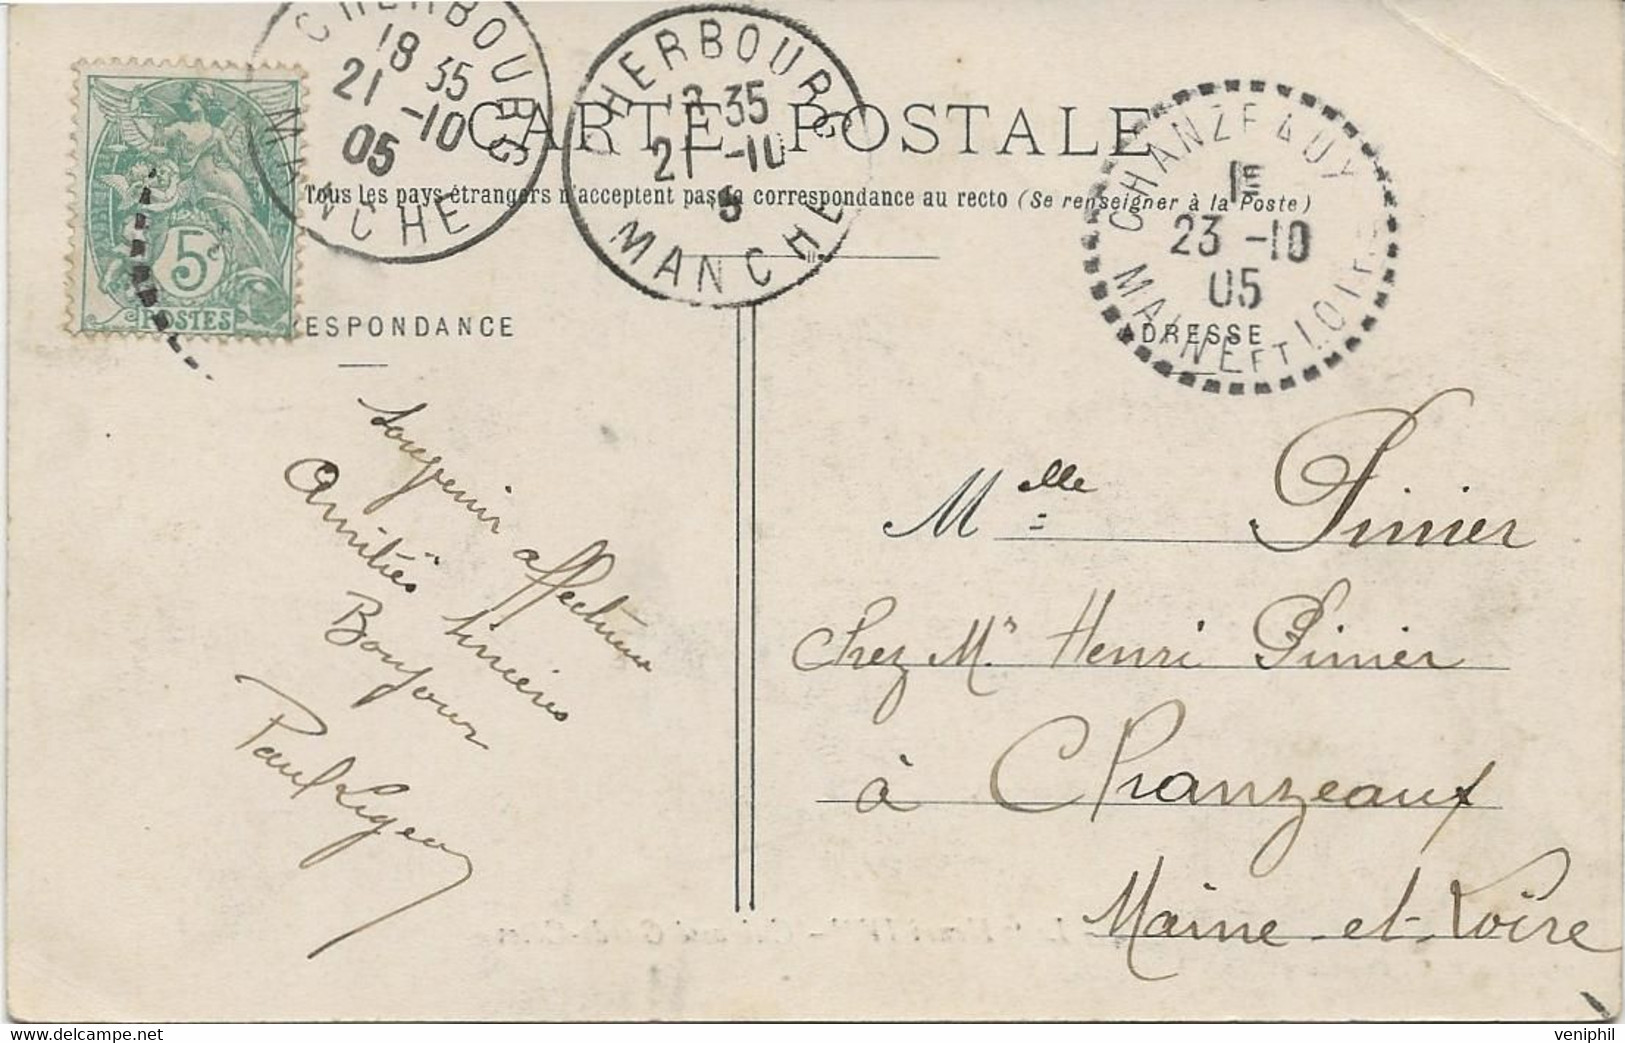 CHERBOURG
18 35
21 -10
05
MANCHE
CHERBOURG
35
21 -10
5
MANCHE
CHANZEAUX
1E
23 -10
05
MAINE ET LOIRE
5c
POSTES
CARTE POSTALE
Tous les pays étrangers n'acceptent pas la correspondance au recto (Se renseigner à la Poste)
RESPONDANCE
ADRESSE
Souvenir affectueux
Amitiés sincères
Bonjour
Paul
Mlle Pinier
Chez Mr Henri Pinier
à Chanzeaux
Maine-et-Loire
veniphil